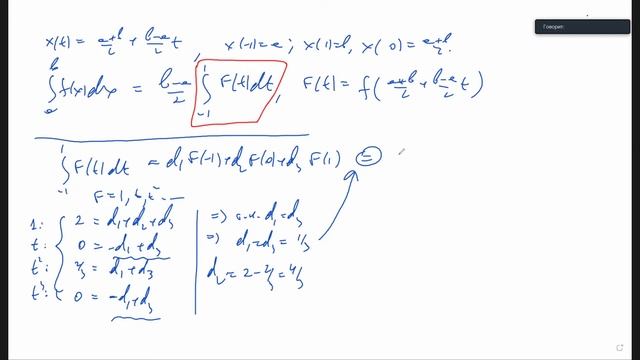 Говорит:
x(t) = \frac{a+b}{2} + \frac{b-a}{2} t , x(-1)=a ; x(1)=b, x(0)=\frac{a+b}{2}.
\int_a^b f(x)dx = \frac{b-a}{2} \int_{-1}^{1} F(t)dt , F(t) = f(\frac{a+b}{2} + \frac{b-a}{2} t)
\int_{-1}^{1} F(t)dt = d_1 F(-1) + d_2 F(0) + d_3 F(1) =
F = 1, t, t^2 ...
1: 2 = d_1 + d_2 + d_3
t: 0 = -d_1 + d_3
t^2: 2/3 = d_1 + d_3
t^3: 0 = -d_1 + d_3
=> d_1 = d_3
=> d_1 = d_3 = 1/3
d_2 = 2 - 2/3 = 4/3